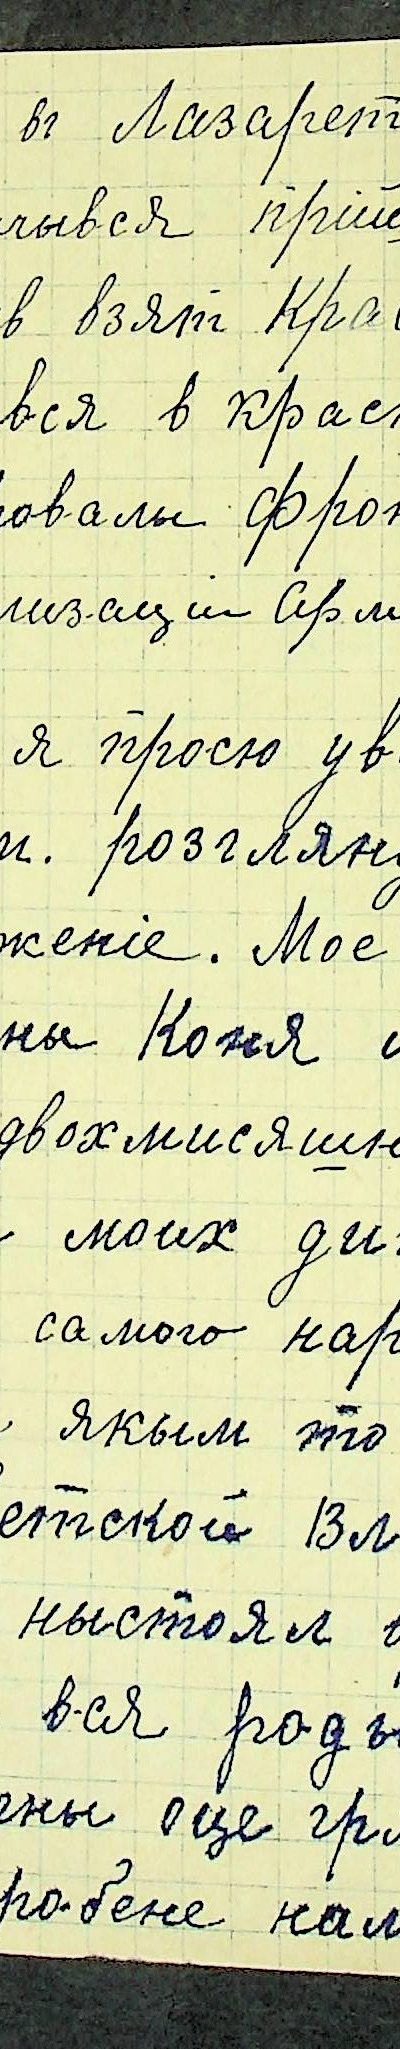 в Лазарет
чывся пріш
в взят Крас
вся в красн
овалы фрон
лизаціи Арм
я просю ув
и. розгляну
женіе. Мое
ны Коня и
двохмисяшн
моих дит
самого нар
якым то
етской Вл
ныстоял
вся роды
ны оце гра
робене нам